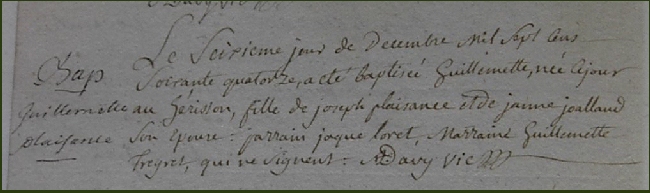 Le Seizieme jour de Decembre Mil Sept Cens
Bap
Soixante quatorze, a eté baptisée Guillemette, née le jour
Guillemette
au herisson, fille de joseph plaisance et de janne joalland
plaisance
Son epouse : parrain jaque loret, Marraine Guillemette
Tregret, qui ne Signent : Davy Vic